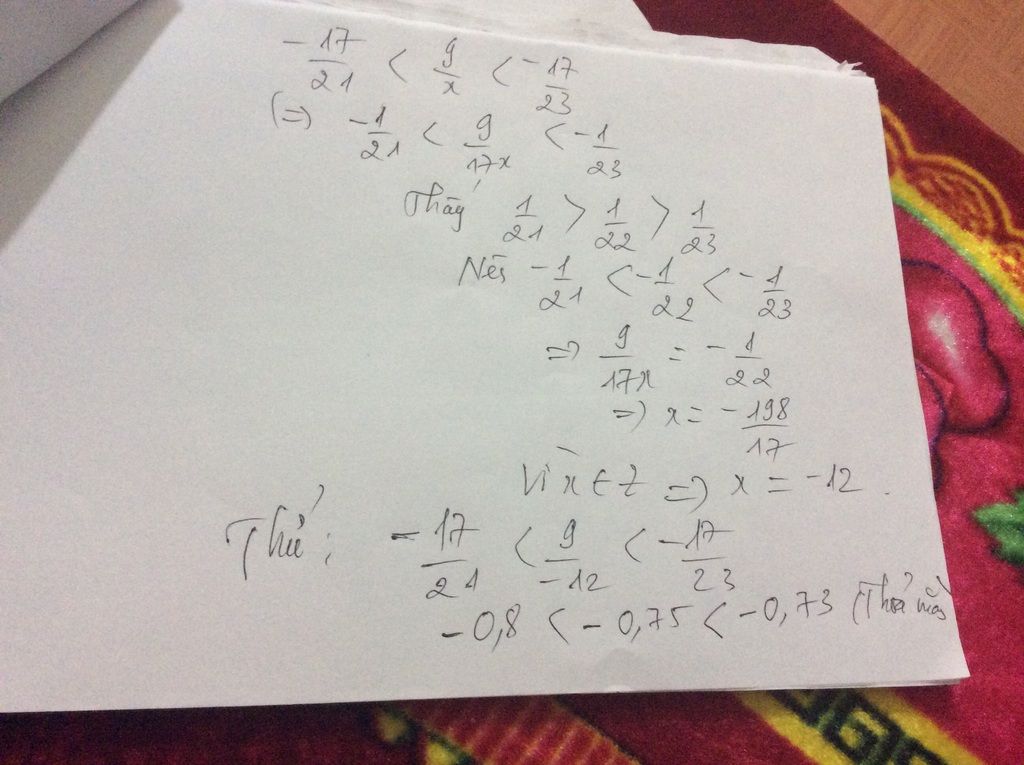 - 17/21 < 9/x < - 17/23
(=) - 1/21 < 9/17x < - 1/23
Thấy 1/21 > 1/22 > 1/23
Nên - 1/21 < - 1/22 < - 1/23
=) 9/17x = - 1/22
=) x = - 198/17
Vì x ∈ Z =) x = -12.
Thử: - 17/21 < 9/-12 < - 17/23
-0,8 < -0,75 < -0,73 (Thoả mãn